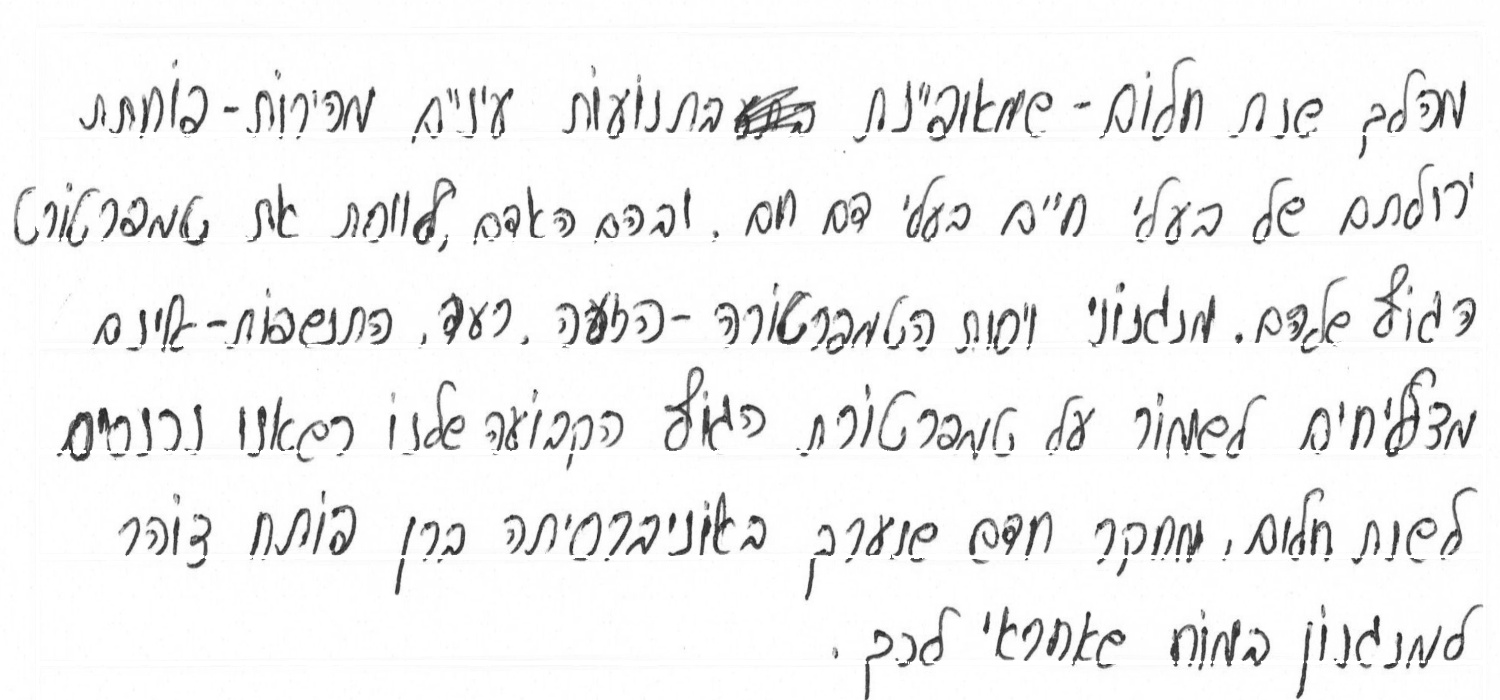 מהלך שנת חלום - שמאופיינת בתנועות עיניים מהירות - פוחתת
יכולתם של בעלי חיים בעלי דם חם, ובהם האדם, לווסת את טמפרטורת
הגוף שלהם. מנגנוני ויסות הטמפרטורה - הזעה, רעד, התנשפות - אינם
מצליחים לשמור על טמפרטורת הגוף הקבועה שלנו כשאנו נכנסים
לשנת חלום. מחקר חדש שנערך באוניברסיטה ברן פותח צוהר
למנגנון במוח שאחראי לכך.